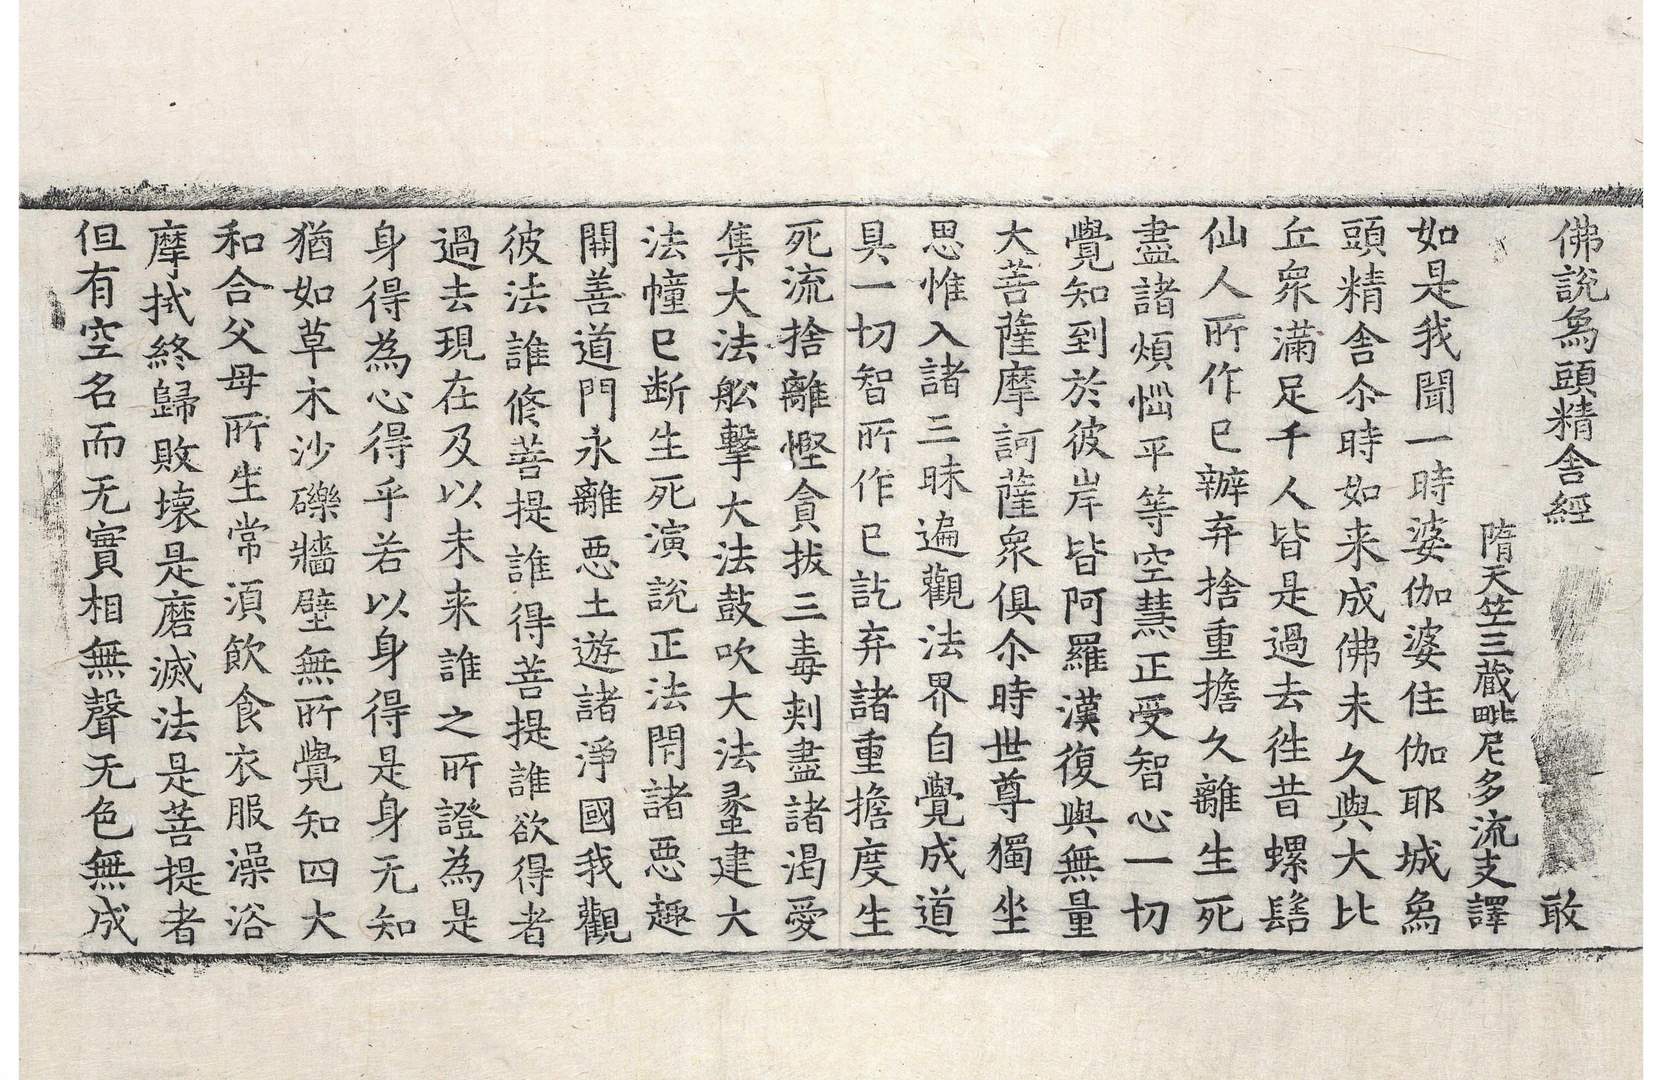 佛說象頭精舍經 敢
隋天竺三藏毗尼多流支譯
如是我聞一時婆伽婆住伽耶城象
頭精舍尒時如来成佛未久與大比
丘衆滿足千人皆是過去徃昔螺髻
仙人所作已辦弃捨重擔久離生死
盡諸煩惱平等空慧正受智心一切
覺知到於彼岸皆阿羅漢復與無量
大菩薩摩訶薩衆俱尒時世尊獨坐
思惟入諸三昧遍觀法界自覺成道
具一切智所作已訖弃諸重擔度生
死流捨離慳貪拔三毒刺盡諸渴愛
集大法舩擊大法鼓吹大法䗍建大
法幢已断生死演說正法閇諸惡趣
開善道門永離惡土遊諸淨國我觀
彼法誰修菩提誰得菩提誰欲得者
過去現在及以未来誰之所證為是
身得為心得乎若以身得是身无知
猶如草木沙礫牆壁無所覺知四大
和合父母所生常湏飲食衣服澡浴
摩拭終歸敗壞是磨滅法是菩提者
但有空名而无實相無聲无色無成